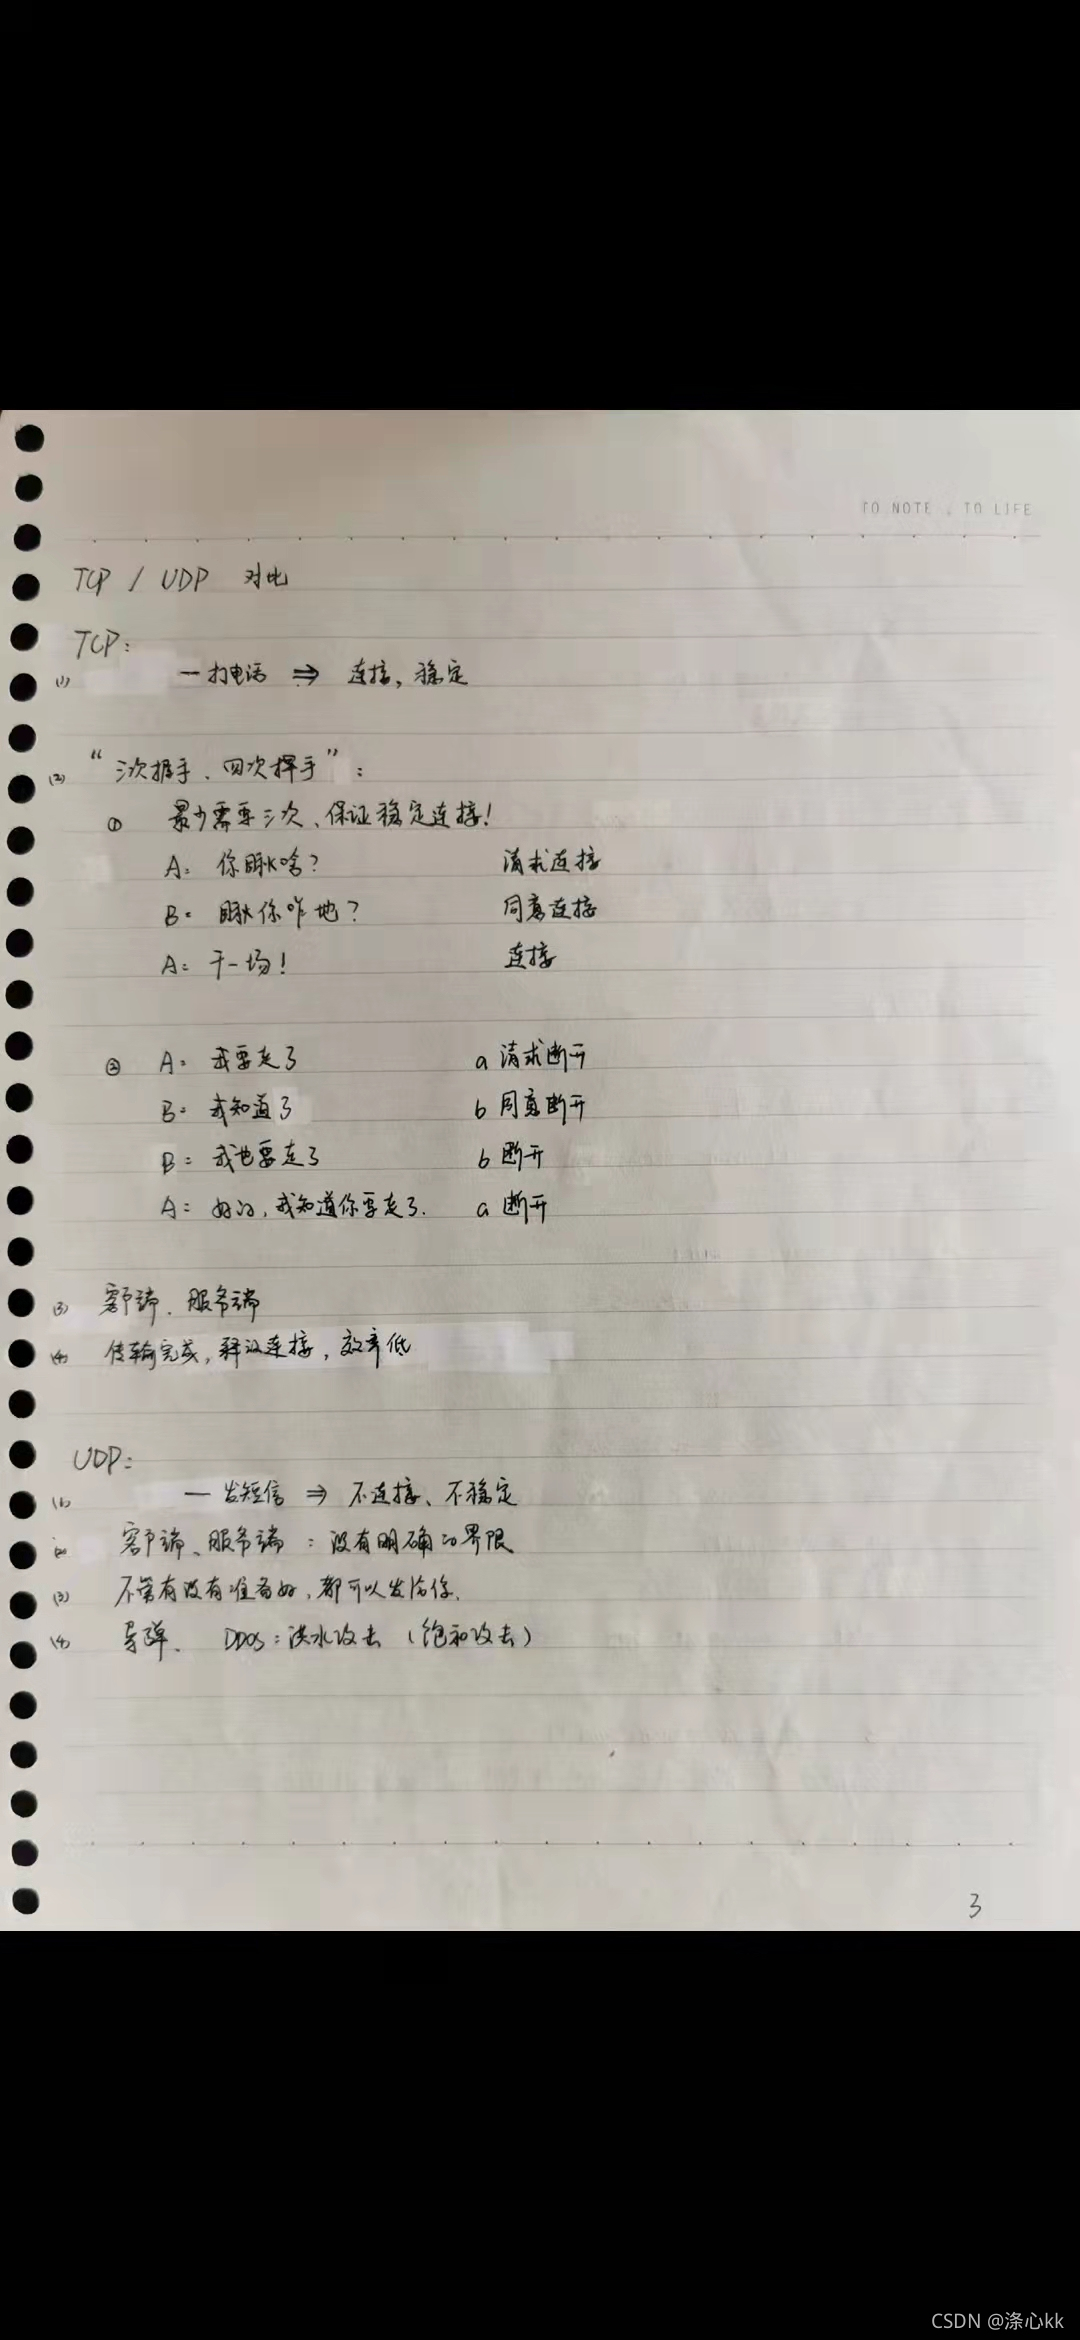 TO NOTE . TO LIFE
TCP / UDP 对比
TCP:
(1) —打电话 ⇒ 连接, 稳定
(2) "三次握手、四次挥手":
① 最少需要三次、保证稳定连接!
A: 你瞅啥?  请求连接
B: 瞅你咋地?  同意连接
A: 干一场!  连接
② A: 我要走了  a 请求断开
B: 我知道了  b 同意断开
B: 我也要走了  b 断开
A: 好的, 我知道你要走了.  a 断开
(3) 客户端、服务端
(4) 传输完成, 释放连接, 效率低
UDP:
(1) —发短信 ⇒ 不连接、不稳定
(2) 客户端、服务端: 没有明确的界限
(3) 不管有没有准备好, 都可以发给你.
(4) 导弹、 DDOS: 洪水攻击 (饱和攻击)
3
CSDN @涤心kk